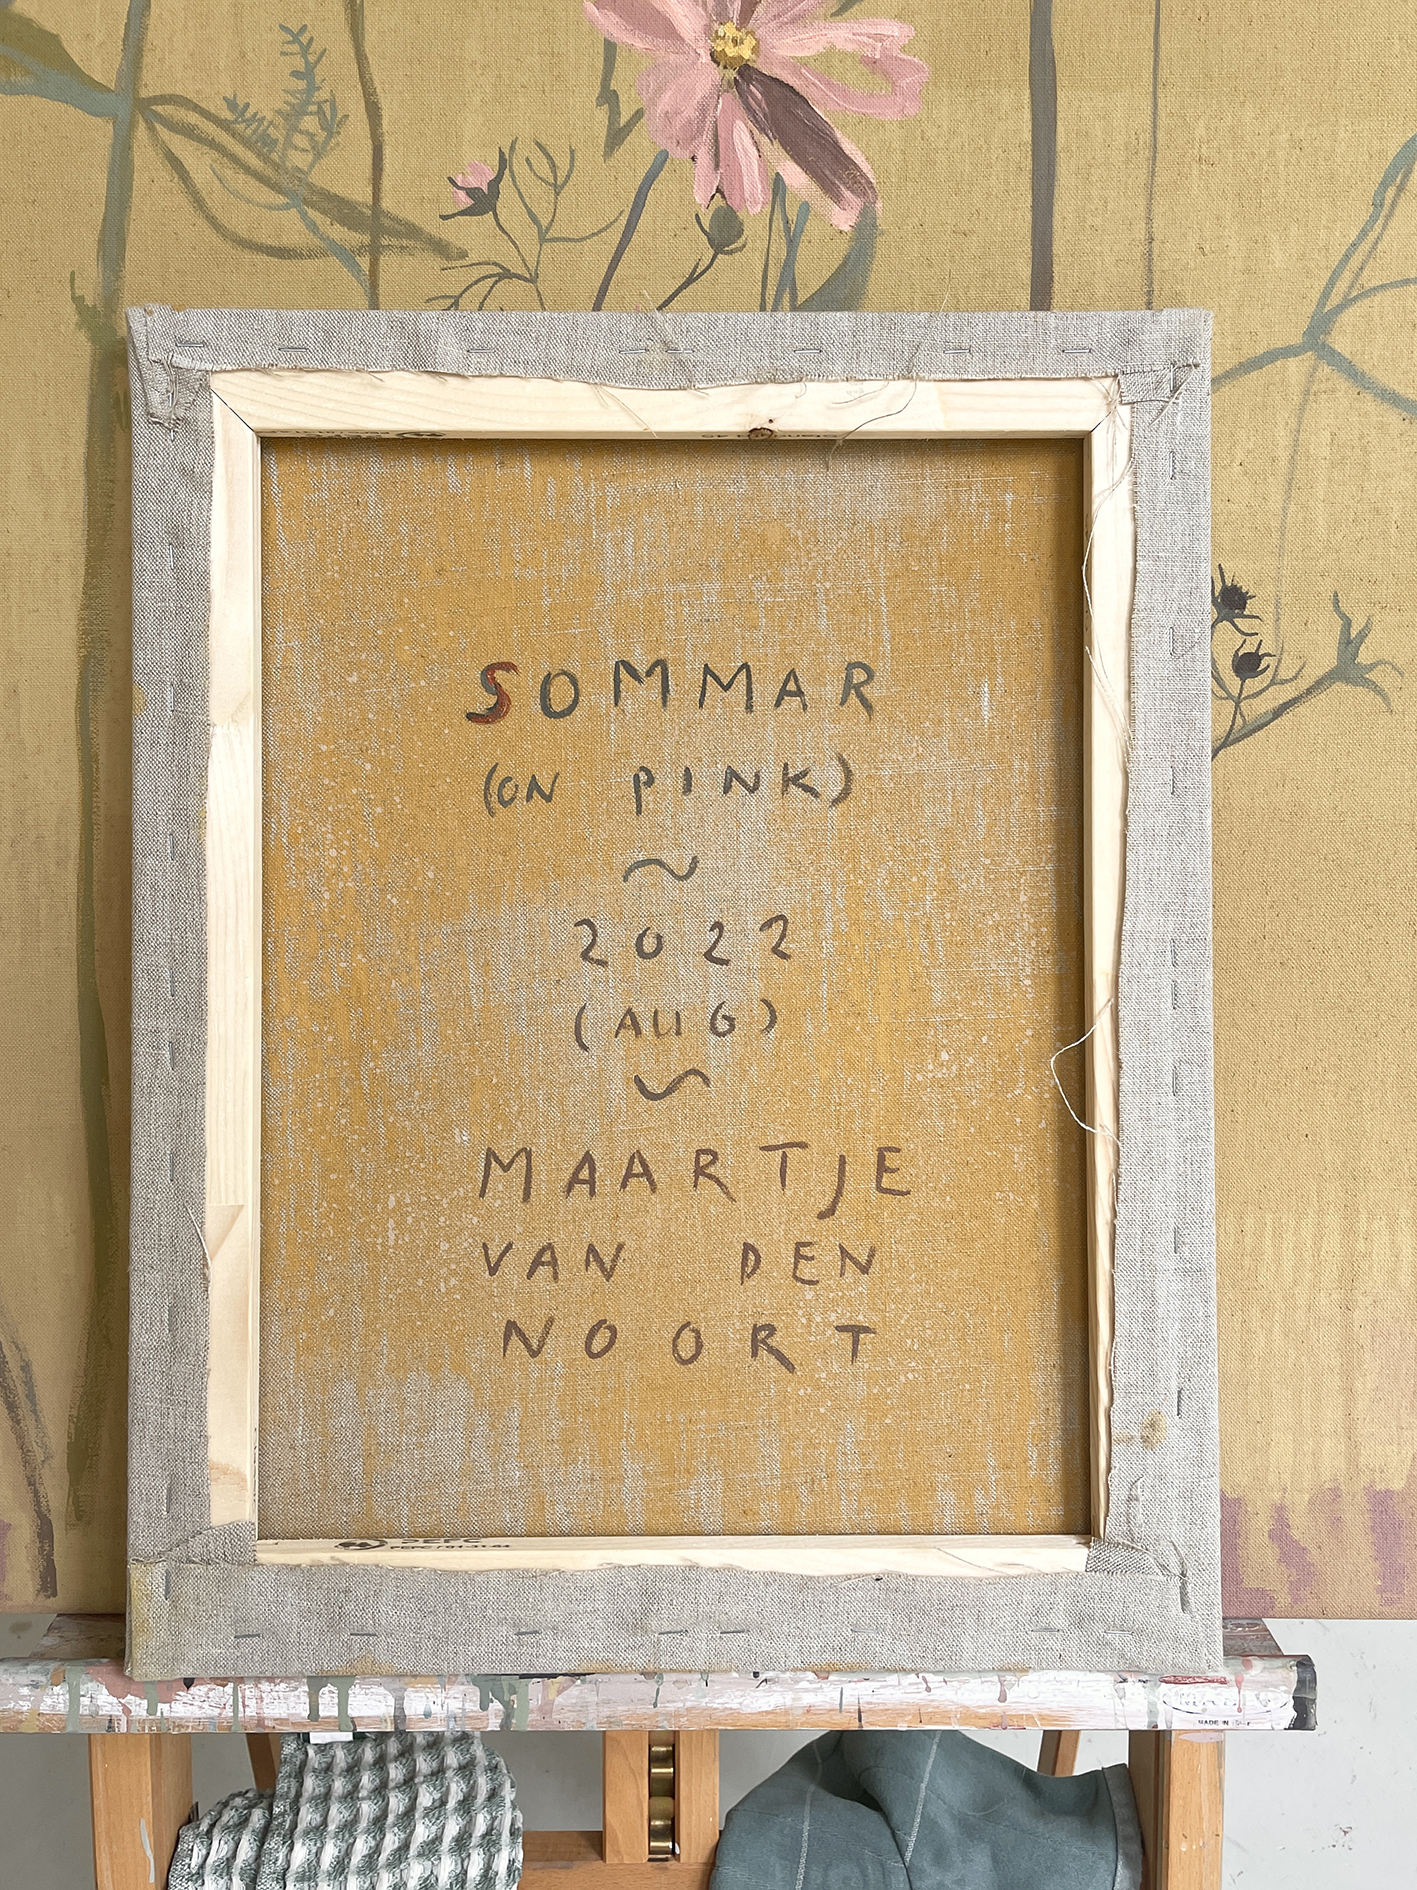 SOMMAR
(ON PINK)
~
2022
(AUG)
~
MAARTJE
VAN DEN
NOORT
MADE IN